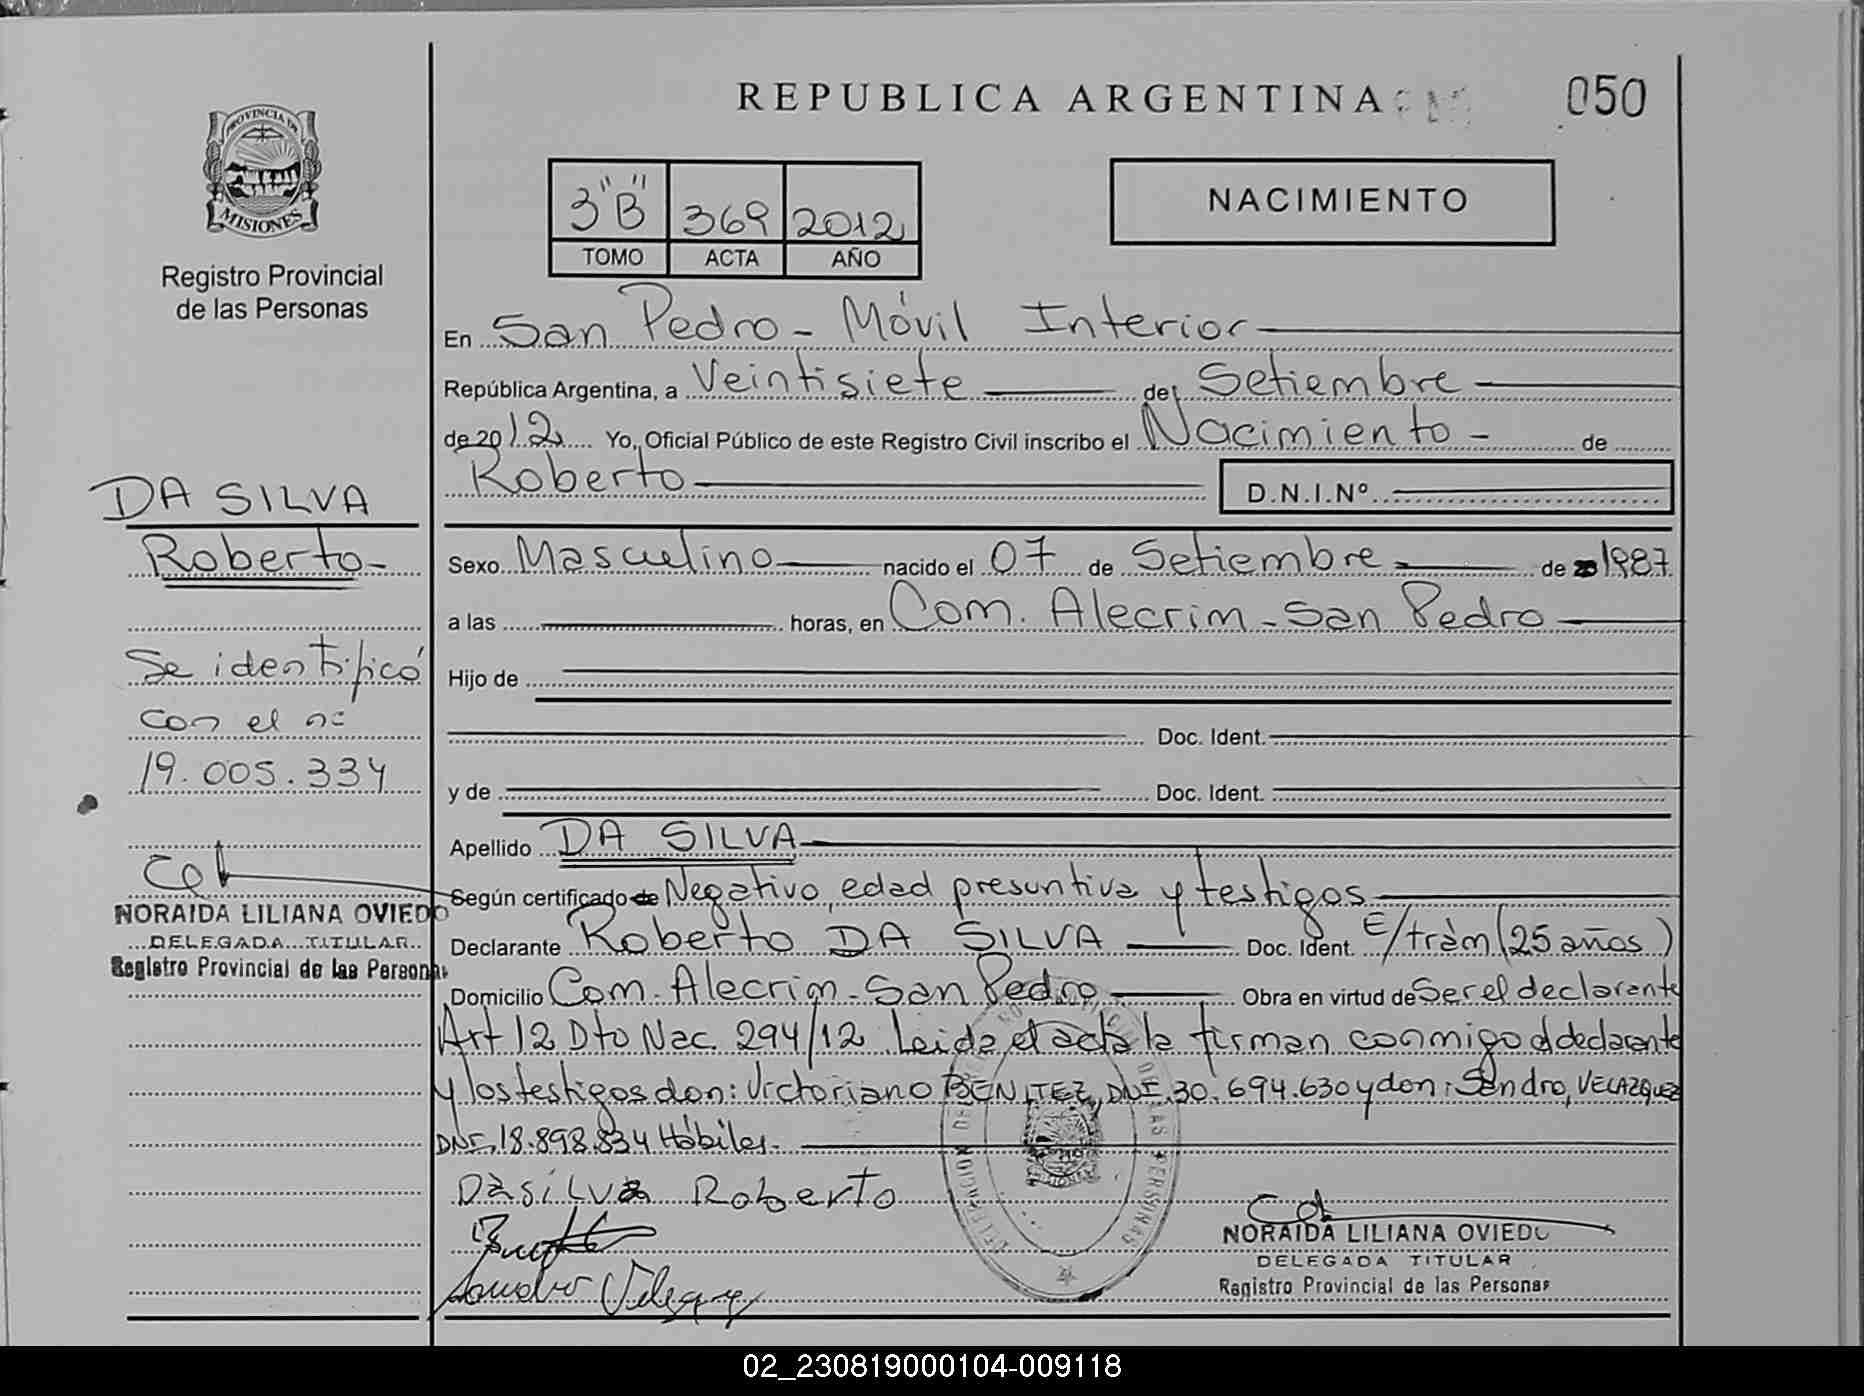 REPUBLICA ARGENTINA
050
PROVINCIA DE
MISIONES
Registro Provincial
de las Personas
3"B" 369 2012
TOMO ACTA AÑO
NACIMIENTO
En San Pedro - Móvil Interior
República Argentina, a Veintisiete de Setiembre
de 2012 Yo, Oficial Público de este Registro Civil inscribo el Nacimiento - de
Roberto D.N.I.Nº
DA SILVA
Roberto-
Se identificó
con el nº
19.005.334
NORAIDA LILIANA OVIEDO
DELEGADA TITULAR
Registro Provincial de las Personas
Sexo Masculino nacido el 07 de Setiembre de 1987
a las horas, en Com. Alecrim - San Pedro
Hijo de
Doc. Ident.
y de Doc. Ident.
Apellido DA SILVA
Según certificado de Negativo, edad presuntiva y testigos
Declarante Roberto DA SILVA Doc. Ident. E/trám (25 años)
Domicilio Com. Alecrim - San Pedro Obra en virtud de Ser el declarante
Art 12 Dto Nac. 294/12 Leida el acta la firman conmigo el declarante
y los testigos don: Victoriano BENITEZ, DNI. 30.694.630 y don: Sandro, VELAZQUEZ
DNI. 18.898.834 Hábiles.-
Dasilva Roberto
Sandro Velazquez
NORAIDA LILIANA OVIEDO
DELEGADA TITULAR
Registro Provincial de las Personas
02_230819000104-009118